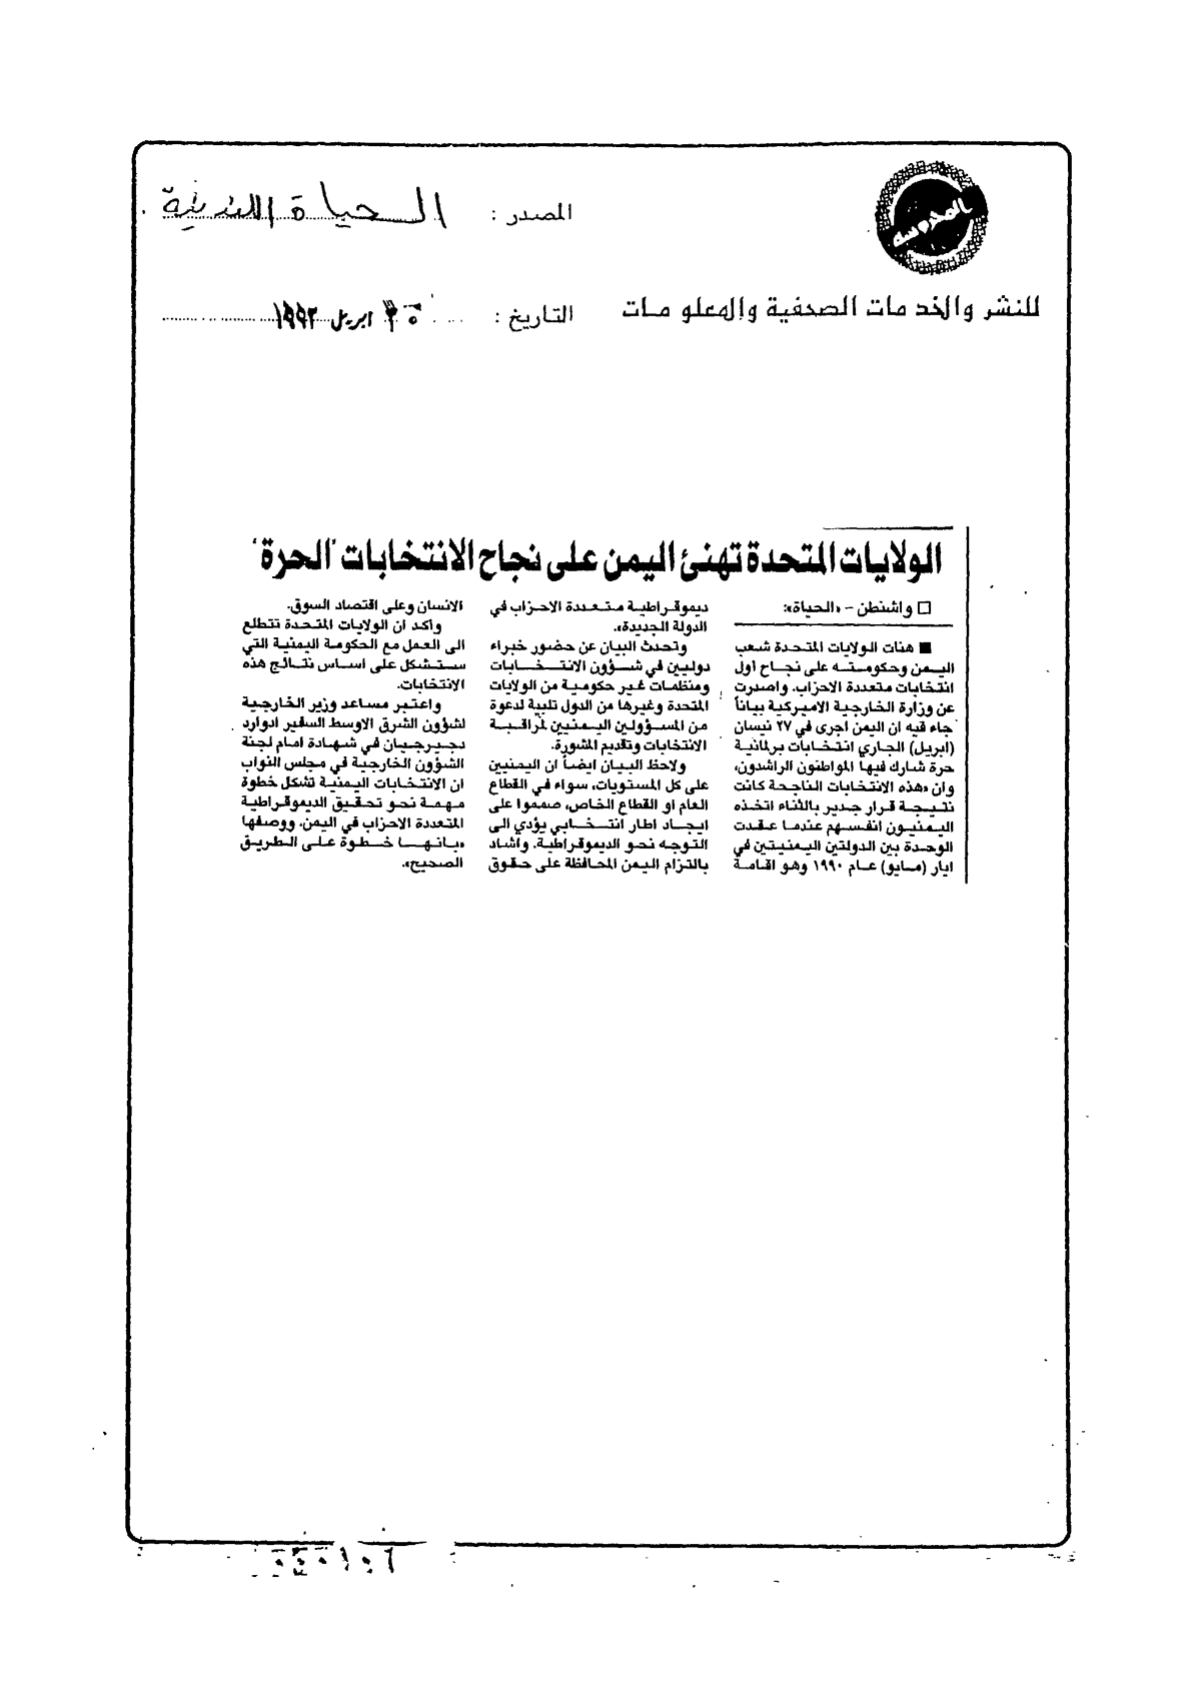 المحروسة
المصدر : الحياة اللندنية
للنشر والخدمات الصحفية والمعلومات
التاريخ : ٣٠ ابريل ١٩٩٣
الولايات المتحدة تهنئ اليمن على نجاح الانتخابات "الحرة"
□ واشنطن – «الحياة»:
■ هنأت الولايات المتحدة شعب
اليمن وحكومته على نجاح اول
انتخابات متعددة الاحزاب. واصدرت
عن وزارة الخارجية الاميركية بياناً
جاء فيه ان اليمن اجرى في ٢٧ نيسان
(ابريل) الجاري انتخابات برلمانية
حرة شارك فيها المواطنون الراشدون،
وان «هذه الانتخابات الناجحة كانت
نتيجة قرار جدير بالثناء اتخذه
اليمنيون انفسهم عندما عقدت
الوحدة بين الدولتين اليمنيتين في
ايار (مايو) عام ١٩٩٠ وهو اقامة
ديموقراطية متعددة الاحزاب في
الدولة الجديدة».
وتحدث البيان عن حضور خبراء
دوليين في شؤون الانتخابات
ومنظمات غير حكومية من الولايات
المتحدة وغيرها من الدول تلبية لدعوة
من المسؤولين اليمنيين لمراقبة
الانتخابات وتقديم المشورة.
ولاحظ البيان ايضاً ان اليمنيين
على كل المستويات، سواء في القطاع
العام او القطاع الخاص، صمموا على
ايجاد اطار انتخابي يؤدي الى
التوجه نحو الديموقراطية. واشاد
بالتزام اليمن المحافظة على حقوق
الانسان وعلى اقتصاد السوق.
واكد ان الولايات المتحدة تتطلع
الى العمل مع الحكومة اليمنية التي
ستشكل على اساس نتائج هذه
الانتخابات.
واعتبر مساعد وزير الخارجية
لشؤون الشرق الاوسط السفير ادوارد
دجيرجيان في شهادة امام لجنة
الشؤون الخارجية في مجلس النواب
ان الانتخابات اليمنية تشكل خطوة
مهمة نحو تحقيق الديموقراطية
المتعددة الاحزاب في اليمن. ووصفها
«بانها خطوة على الطريق
الصحيح».